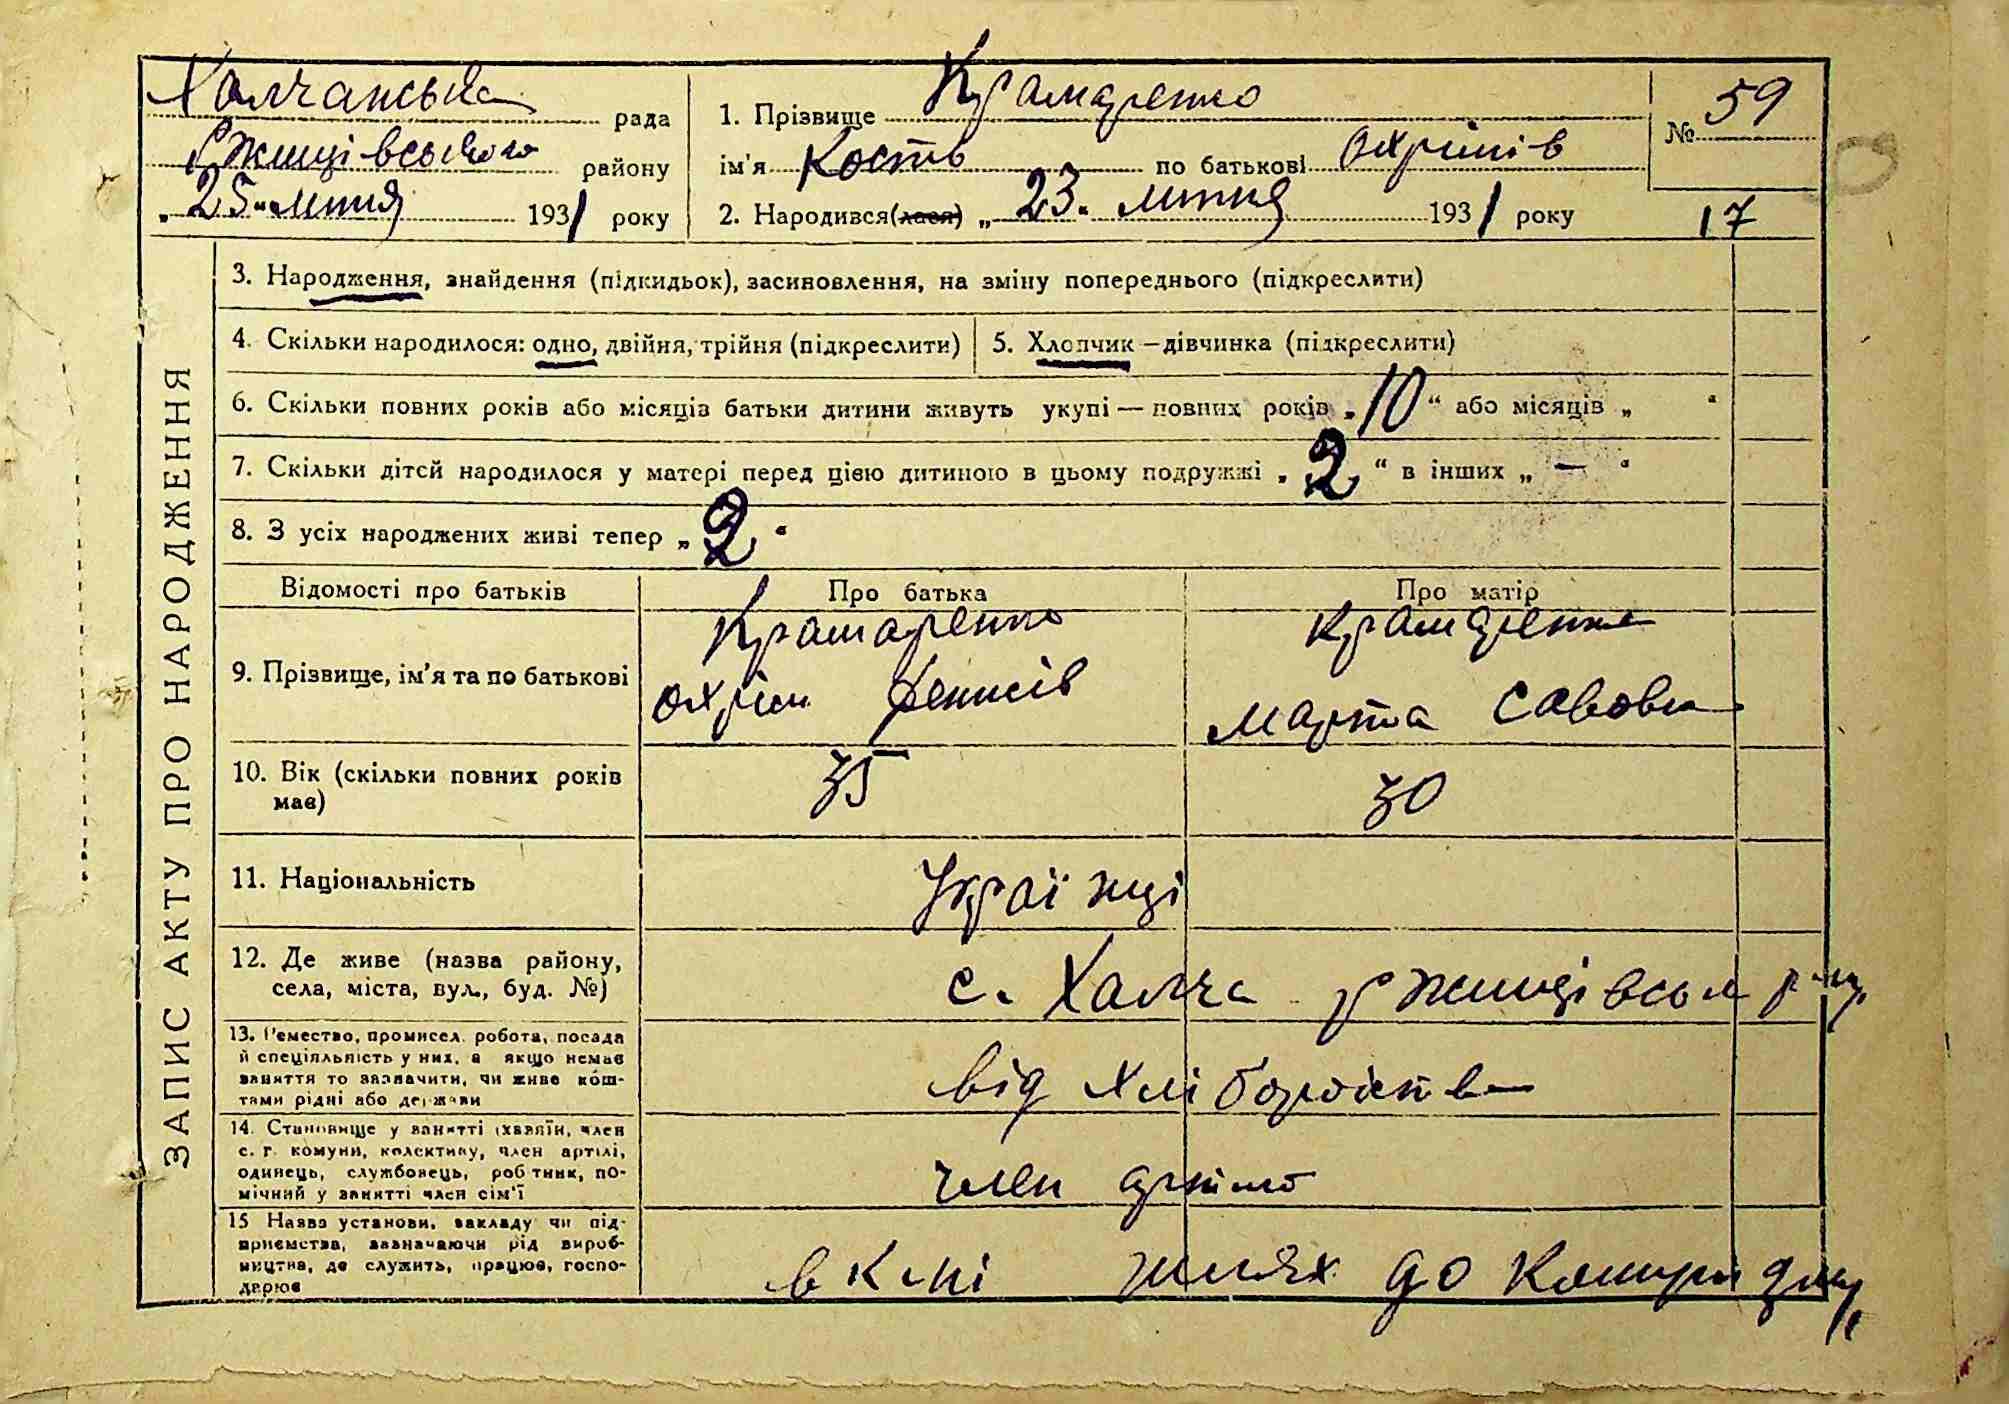 Халчанська рада
Ржищівського району
„25" липня 1931 року
1. Прізвище Крамаренко
ім'я Кость по батькові Охрімів
2. Народився(лася) „23" липня 1931 року
№ 59
17
ЗАПИС АКТУ ПРО НАРОДЖЕННЯ
3. Народження, знайдення (підкидьок), засиновлення, на зміну попереднього (підкреслити)
4. Скільки народилося: одно, двійня, трійня (підкреслити) 5. Хлопчик—дівчинка (підкреслити)
6. Скільки повних років або місяців батьки дитини живуть укупі — повних років „10“ або місяців „ “
7. Скільки дітей народилося у матері перед цією дитиною в цьому подружжі „2“ в інших „—“
8. З усіх народжених живі тепер „2“
Відомості про батьків Про батька Про матір
9. Прізвище, ім'я та по батькові
Крамаренко
Охрім Денисів
Крамаренко
Марта Савовна
10. Вік (скільки повних років
має)
35 30
11. Національність Українці
12. Де живе (назва району,
села, міста, вул., буд. №)
с. Халча Ржищівськ р-ну
13. Ремество, промисел, робота, посада
й спеціяльність у них, а якщо немає
заняття то зазначити, чи живе кош-
тами рідні або держави
від хліборобства
14. Становище у занятті (хазяїн, член
с. г. комуни, колективу, член артілі,
одинець, службовець, робітник, по-
мічний у занятті член сім'ї
член артілі
15 Назва установи, закладу чи під-
приємства, зазначаючи рід вироб-
ництва, де служить, працює, госпо-
дарює
шлях до